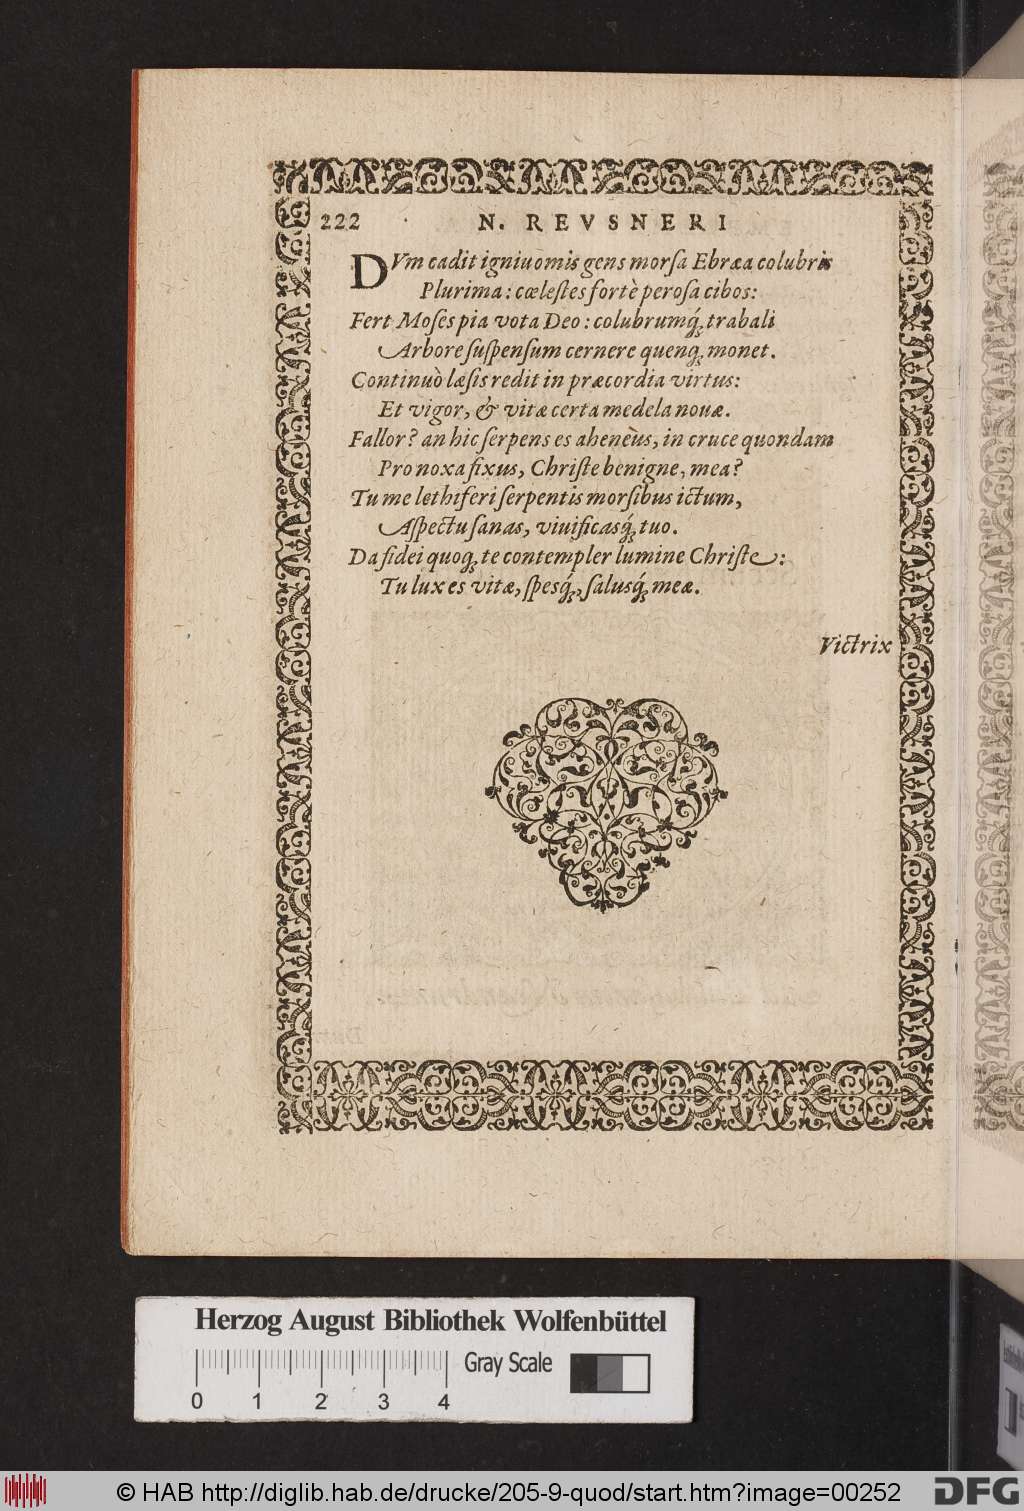 222 N. REVSNERI
DVm cadit igniuomis gens morſa Ebræa colubris
Plurima: cœleſtes fortè peroſa cibos:
Fert Moſes pia vota Deo: colubrumq́; trabali
Arbore ſuſpenſum cernere quenq; monet.
Continuò læſis redit in præcordia virtus:
Et vigor, & vitæ certa medela nouæ.
Fallor? an hic ſerpens es aheneus, in cruce quondam
Pro noxa fixus, Chriſte benigne, mea?
Tu me lethiferi ſerpentis morſibus ictum,
Aſpectu ſanas, viuificasq́; tuo.
Da fidei quoq; te contempler lumine Chriſte:
Tu lux es vitæ, ſpesq́;, ſalusq́; meæ.
Victrix
Herzog August Bibliothek Wolfenbüttel
Gray Scale
0 1 2 3 4
© HAB http://diglib.hab.de/drucke/205-9-quod/start.htm?image=00252
DFG